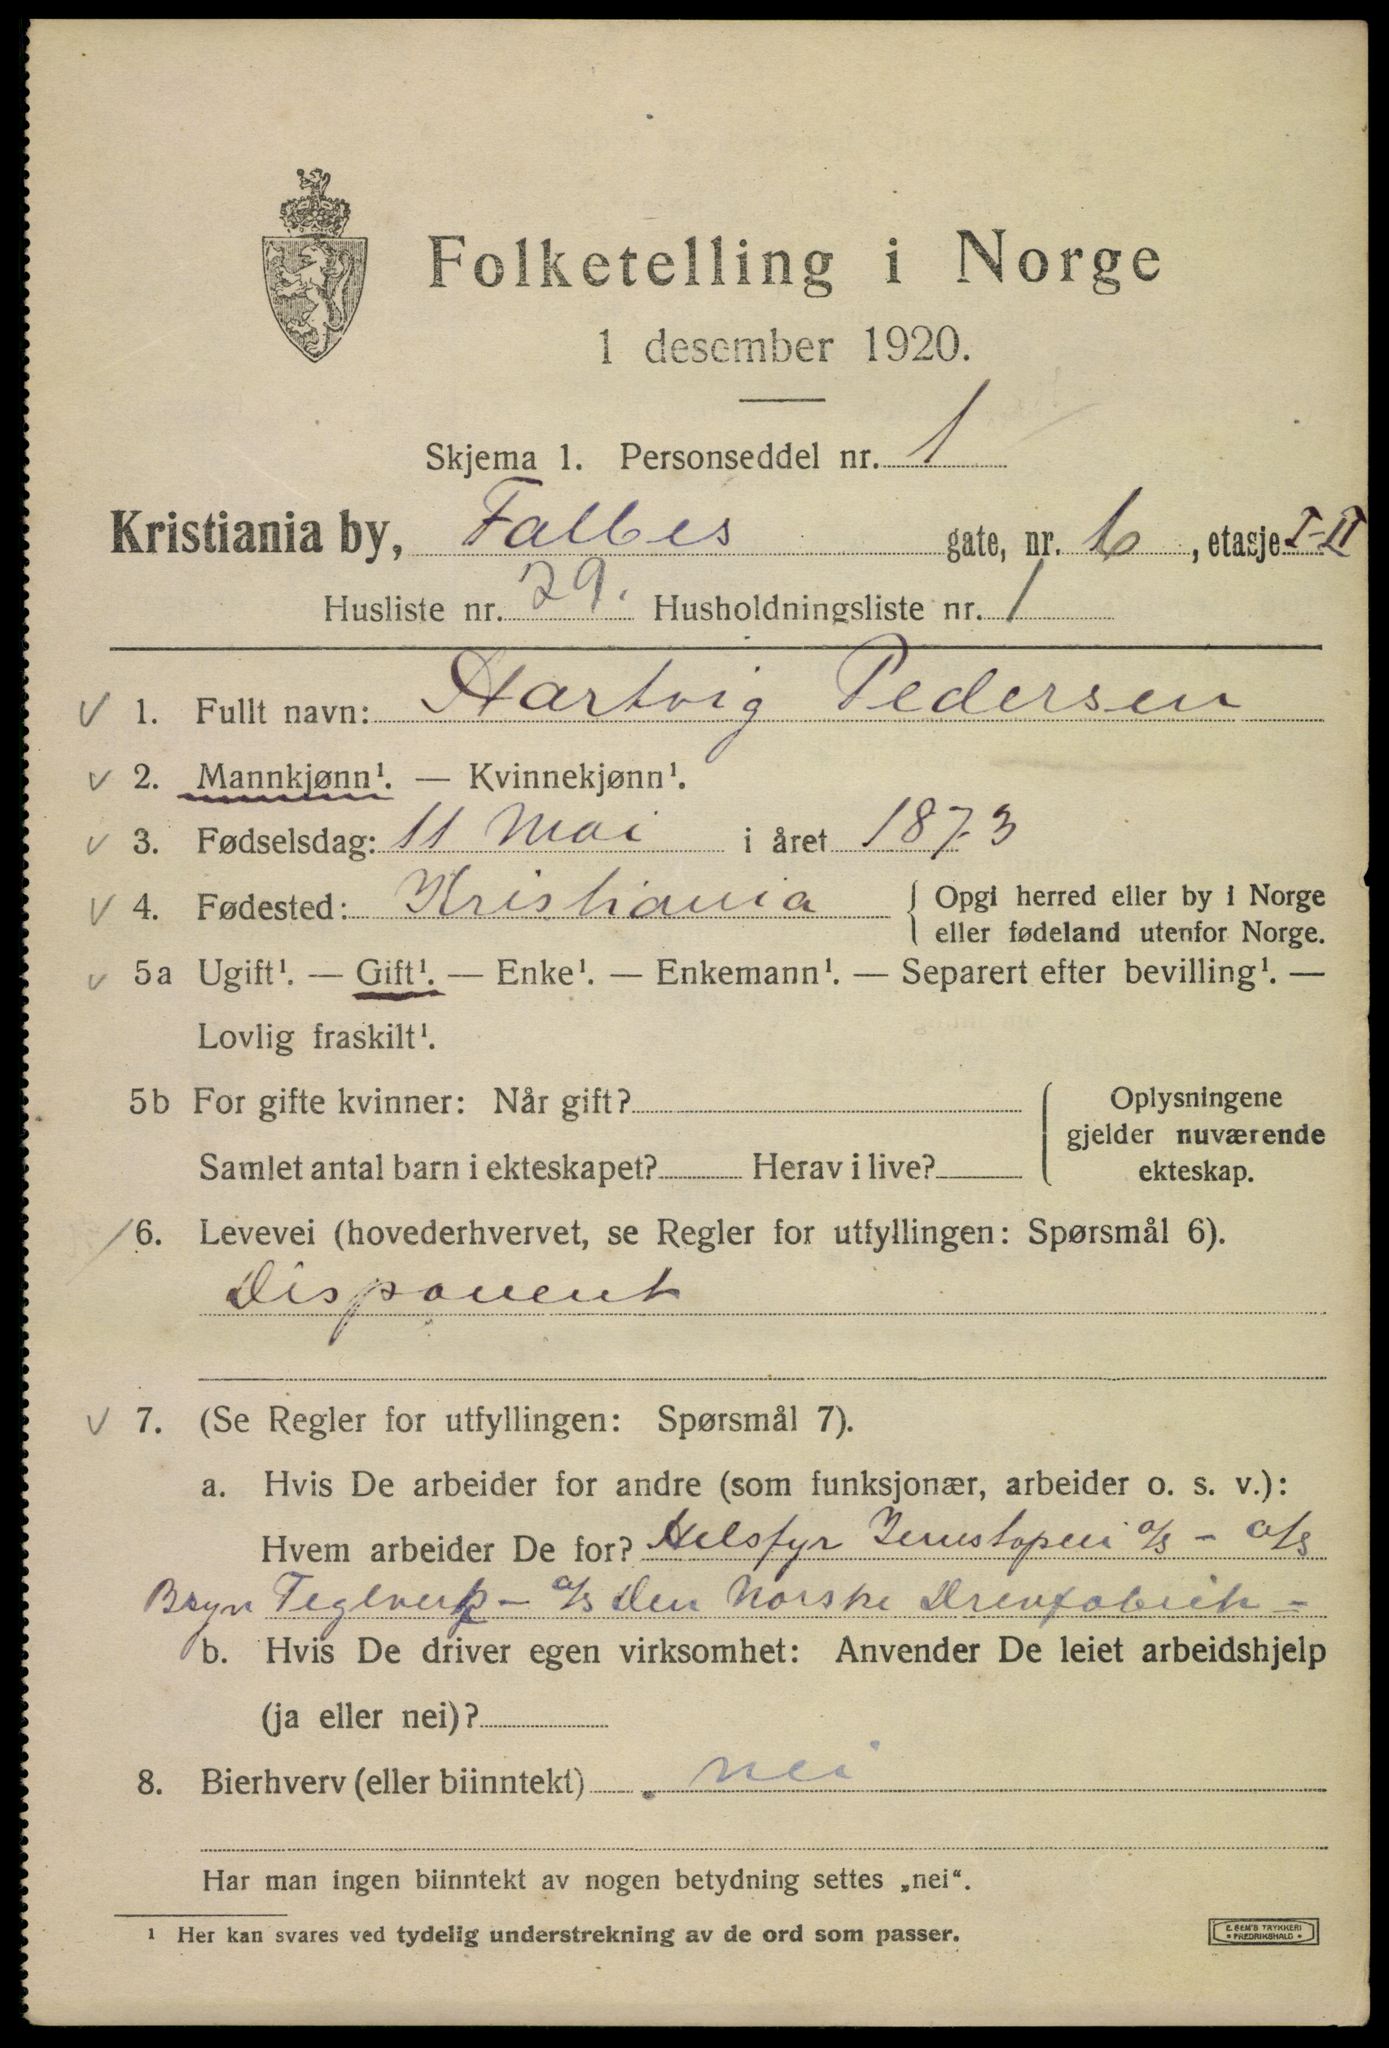 Folketelling i Norge
1 desember 1920.
Skjema 1. Personseddel nr. 1
Kristiania by, Falbes gate, nr. 16, etasje I-II
Husliste nr. 29. Husholdningsliste nr. 1
1. Fullt navn: Hartvig Pedersen
2. Mannkjønn¹. — Kvinnekjønn¹.
3. Fødselsdag: 11 Mai i året 1873
4. Fødested: Kristiania { Opgi herred eller by i Norge
eller fødeland utenfor Norge.
5a Ugift¹. — Gift¹. — Enke¹. — Enkemann¹. — Separert efter bevilling¹. —
Lovlig fraskilt¹.
5b For gifte kvinner: Når gift? { Oplysningene
gjelder nuværende
Samlet antal barn i ekteskapet? Herav i live? ekteskap.
6. Levevei (hovederhvervet, se Regler for utfyllingen: Spørsmål 6).
Disponent
7. (Se Regler for utfyllingen: Spørsmål 7).
a. Hvis De arbeider for andre (som funksjonær, arbeider o. s. v.):
Hvem arbeider De for? Helsfyr Jernstøperi a/s - a/s
Bryn Teglverk - a/s Den Norske Drevfabrik -
b. Hvis De driver egen virksomhet: Anvender De leiet arbeidshjelp
(ja eller nei)?
8. Bierhverv (eller biinntekt) nei
Har man ingen biinntekt av nogen betydning settes „nei“.
¹ Her kan svares ved tydelig understrekning av de ord som passer.
E. SEM'S TRYKKERI
• FREDRIKSHALD •